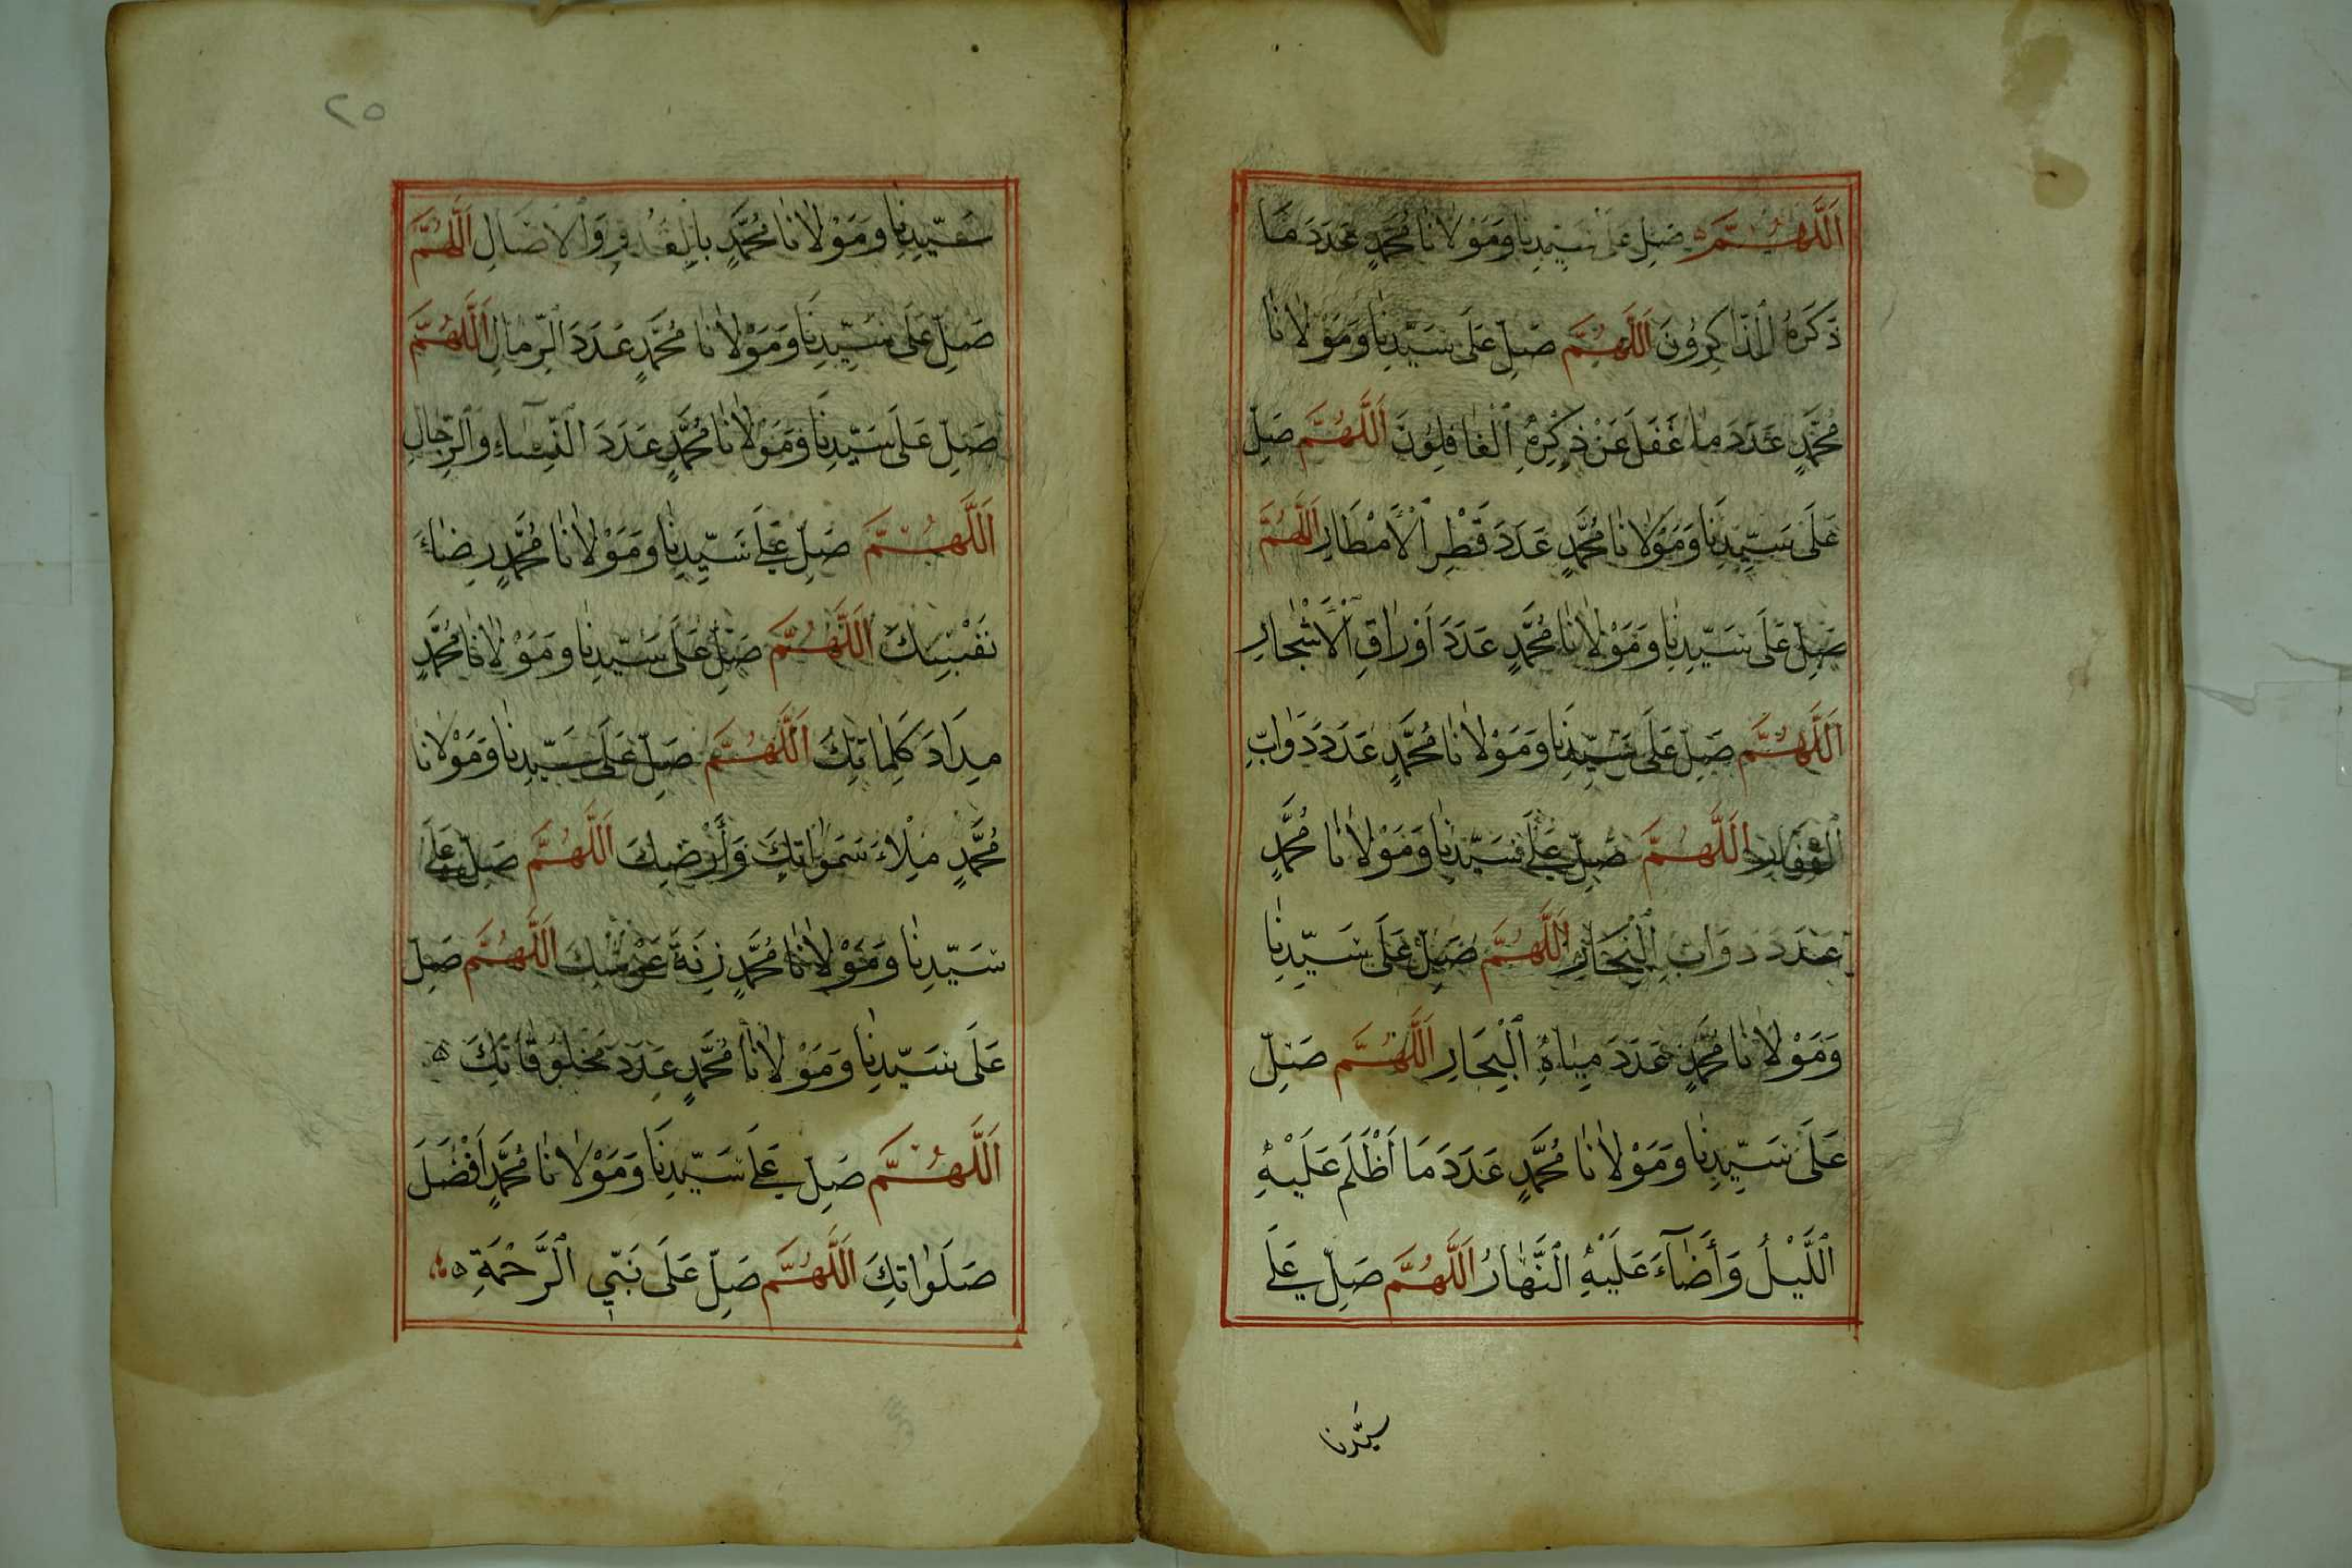 اَللَّهُمَّ صَلِّ عَلَى سَيِّدِنَا وَمَوْلَانَا مُحَمَّدٍ عَدَدَ مَا
ذَكَرَهُ الذَّاكِرُونَ اَللَّهُمَّ صَلِّ عَلَى سَيِّدِنَا وَمَوْلَانَا
مُحَمَّدٍ عَدَدَ مَا غَفَلَ عَنْ ذِكْرِهِ الْغَافِلُونَ اَللَّهُمَّ صَلِّ
عَلَى سَيِّدِنَا وَمَوْلَانَا مُحَمَّدٍ عَدَدَ قَطْرِ الْأَمْطَارِ اَللَّهُمَّ
صَلِّ عَلَى سَيِّدِنَا وَمَوْلَانَا مُحَمَّدٍ عَدَدَ اَوْرَاقِ الْأَشْجَارِ
اَللَّهُمَّ صَلِّ عَلَى سَيِّدِنَا وَمَوْلَانَا مُحَمَّدٍ عَدَدَ دَوَابِّ
الْقِفَارِ اَللَّهُمَّ صَلِّ عَلَى سَيِّدِنَا وَمَوْلَانَا مُحَمَّدٍ
عَدَدَ دَوَابِّ الْبِحَارِ اَللَّهُمَّ صَلِّ عَلَى سَيِّدِنَا
وَمَوْلَانَا مُحَمَّدٍ عَدَدَ مِيَاهِ الْبِحَارِ اَللَّهُمَّ صَلِّ
عَلَى سَيِّدِنَا وَمَوْلَانَا مُحَمَّدٍ عَدَدَ مَا أَظْلَمَ عَلَيْهِ
اللَّيْلُ وَأَضَآءَ عَلَيْهِ النَّهَارُ اَللَّهُمَّ صَلِّ عَلَى
سيّدنا
٢٥
سَيِّدِنَا وَمَوْلَانَا مُحَمَّدٍ بِالْغُدُوِّ وَالْاٰصَالِ اَللَّهُمَّ
صَلِّ عَلَى سَيِّدِنَا وَمَوْلَانَا مُحَمَّدٍ عَدَدَ الرِّمَالِ اَللَّهُمَّ
صَلِّ عَلَى سَيِّدِنَا وَمَوْلَانَا مُحَمَّدٍ عَدَدَ النِّسَآءِ وَالرِّجَالِ
اَللَّهُمَّ صَلِّ عَلَى سَيِّدِنَا وَمَوْلَانَا مُحَمَّدٍ رِضَاءَ
نَفْسِكَ اَللَّهُمَّ صَلِّ عَلَى سَيِّدِنَا وَمَوْلَانَا مُحَمَّدٍ
مِدَادَ كَلِمَاتِكَ اَللَّهُمَّ صَلِّ عَلَى سَيِّدِنَا وَمَوْلَانَا
مُحَمَّدٍ مِلْاءَ سَمَوَاتِكَ وَأَرْضِكَ اَللَّهُمَّ صَلِّ عَلَى
سَيِّدِنَا وَمَوْلَانَا مُحَمَّدٍ زِنَةَ عَرْشِكَ اَللَّهُمَّ صَلِّ
عَلَى سَيِّدِنَا وَمَوْلَانَا مُحَمَّدٍ عَدَدَ مَخْلُوقَاتِكَ
اَللَّهُمَّ صَلِّ عَلَى سَيِّدِنَا وَمَوْلَانَا مُحَمَّدٍ اَفْضَلَ
صَلَوَاتِكَ اَللَّهُمَّ صَلِّ عَلَى نَبِيِّ الرَّحْمَةِ